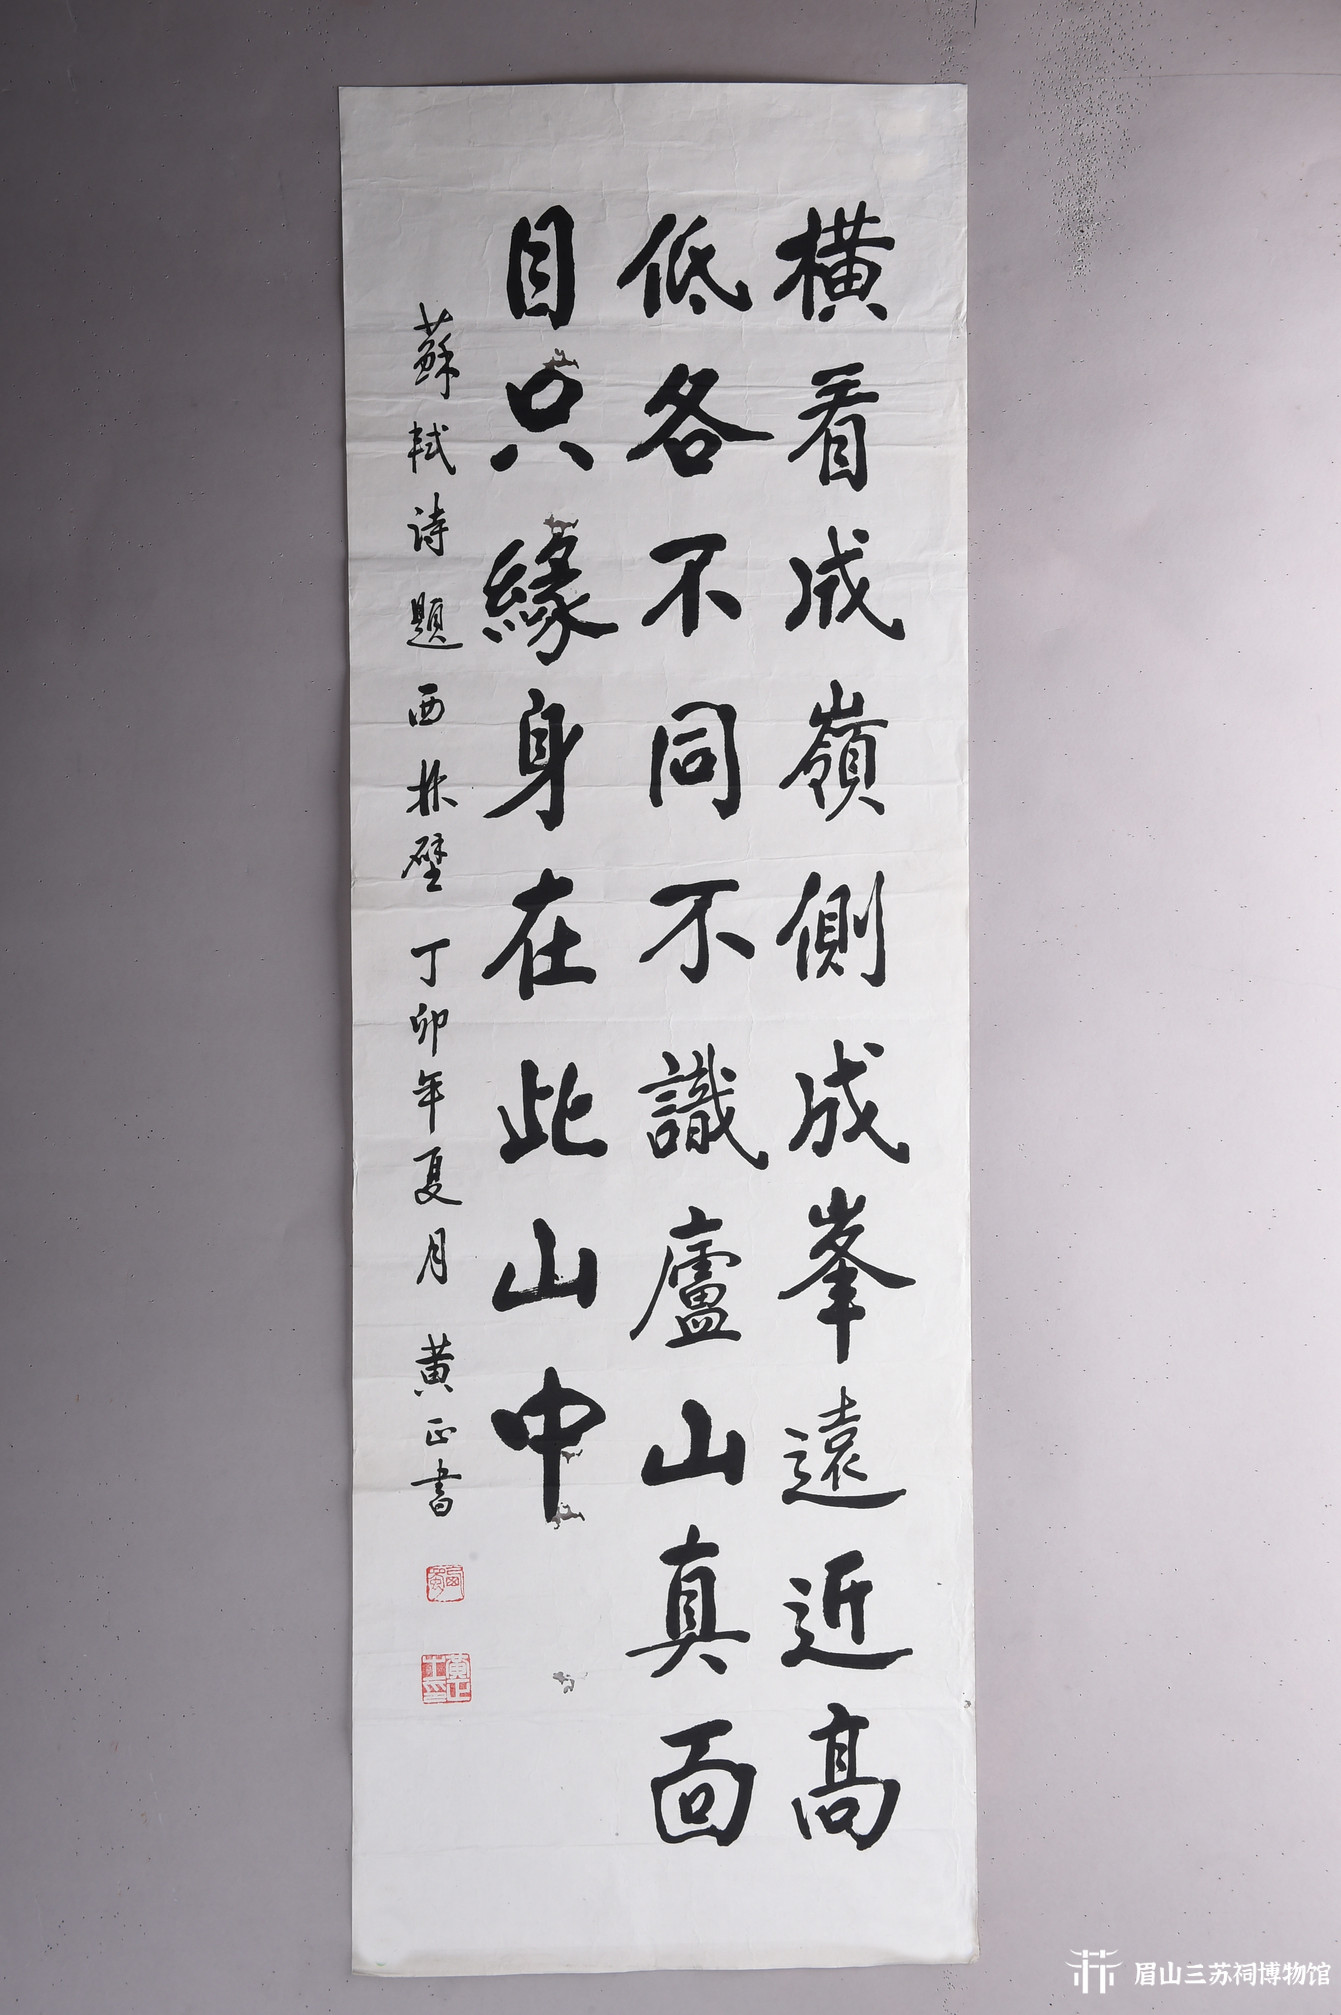 橫看成嶺側成峯遠近高
低各不同不識廬山真面
目只緣身在此山中
蘇軾诗題西林壁 丁卯年夏月 黄正書
眉山三苏祠博物馆